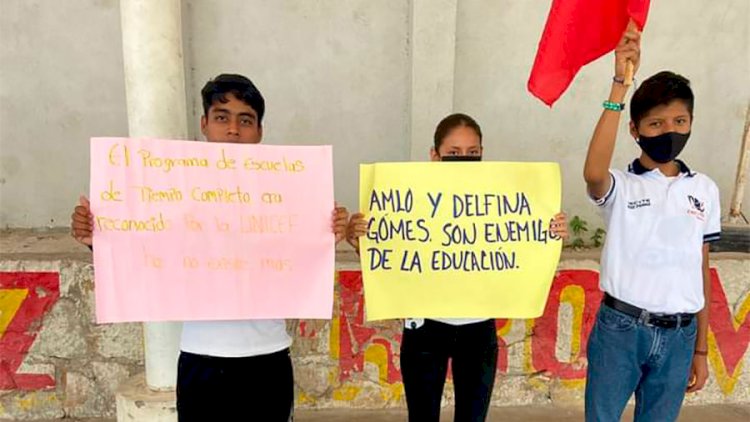 El Programa de Escuelas
de Tiempo Completo era
reconocido Por la UNICEF
ha no existe mas
AMLO Y DELFINA
GÓMES. SON ENEMIGO
DE LA EDUCACIÓN.